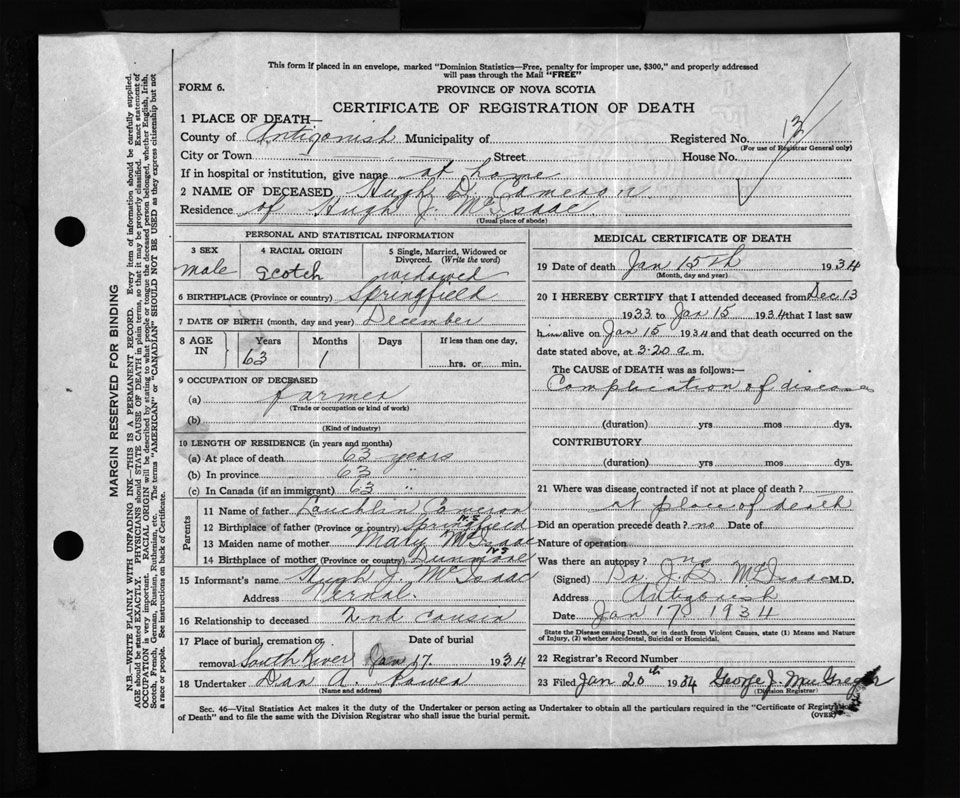 This form if placed in an envelope, marked "Dominion Statistics—Free, penalty for improper use, $300," and properly addressed
will pass through the Mail "FREE"
FORM 6.
PROVINCE OF NOVA SCOTIA
CERTIFICATE OF REGISTRATION OF DEATH
1 PLACE OF DEATH—
County of Antigonish Municipality of Registered No. 13
(For use of Registrar General only)
City or Town Street House No.
If in hospital or institution, give name at home
2 NAME OF DECEASED Hugh D. Cameron
Residence of Hugh J. McIsaac
(Usual place of abode)
PERSONAL AND STATISTICAL INFORMATION
3 SEX 4 RACIAL ORIGIN 5 Single, Married, Widowed or
Divorced. (Write the word)
male Scotch widowed
6 BIRTHPLACE (Province or country) Springfield
7 DATE OF BIRTH (month, day and year) December
8 AGE IN Years Months Days If less than one day,
63 1 hrs. or min.
9 OCCUPATION OF DECEASED
(a) farmer
(Trade or occupation or kind of work)
(b)
(Kind of industry)
10 LENGTH OF RESIDENCE (in years and months)
(a) At place of death 63 years
(b) In province 63 "
(c) In Canada (if an immigrant) 63 "
Parents
11 Name of father Lauchlin Cameron
12 Birthplace of father (Province or country) Springfield N.S
13 Maiden name of mother Mary McIsaac
14 Birthplace of mother (Province or country) Dunmore N.S
15 Informant's name Hugh J. McIsaac
Address Vernal.
16 Relationship to deceased 2nd cousin
17 Place of burial, cremation or Date of burial
removal South River Jan 17 1934
18 Undertaker Dan A.
(Name and address)
MEDICAL CERTIFICATE OF DEATH
19 Date of death Jan 15th 1934
(Month, day and year)
20 I HEREBY CERTIFY that I attended deceased from Dec 13
1933 to Jan 15 1934 that I last saw
him alive on Jan 15 1934 and that death occurred on the
date stated above, at 3.20 a. m.
The CAUSE of DEATH was as follows:—
Complication of disease
(duration) yrs mos dys.
CONTRIBUTORY
(duration) yrs. mos. dys.
21 Where was disease contracted if not at place of death?
at place of death
Did an operation precede death? no Date of
Nature of operation
Was there an autopsy? no
(Signed) Dr J. McIsaac M.D.
Address Antigonish
Date Jan 17 1934
State the Disease causing Death, or in death from Violent Causes, state (1) Means and Nature
of Injury, (2) whether Accidental, Suicidal or Homicidal.
22 Registrar's Record Number
23 Filed Jan 20th 1934 George J. MacGregor
(Division Registrar)
Sec. 46—Vital Statistics Act makes it the duty of the Undertaker or person acting as Undertaker to obtain all the particulars required in the "Certificate of Registration
of Death" and to file the same with the Division Registrar who shall issue the burial permit. (OVER)
MARGIN RESERVED FOR BINDING
N.B.—WRITE PLAINLY WITH UNFADING INK—THIS IS A PERMANENT RECORD. Every item of information should be carefully supplied.
AGE should be stated EXACTLY. PHYSICIANS should STATE CAUSE OF DEATH in plain terms, so that it may be properly classified. Exact statement of
OCCUPATION is very important. RACIAL ORIGIN will be described by stating to what people or tongue the deceased person belonged, whether English, Irish,
Scotch, French, German, Russian, Ruthenian, etc. The terms "AMERICAN" or "CANADIAN" SHOULD NOT BE USED as they express citizenship but not
a race or people. See instructions on back of Certificate.